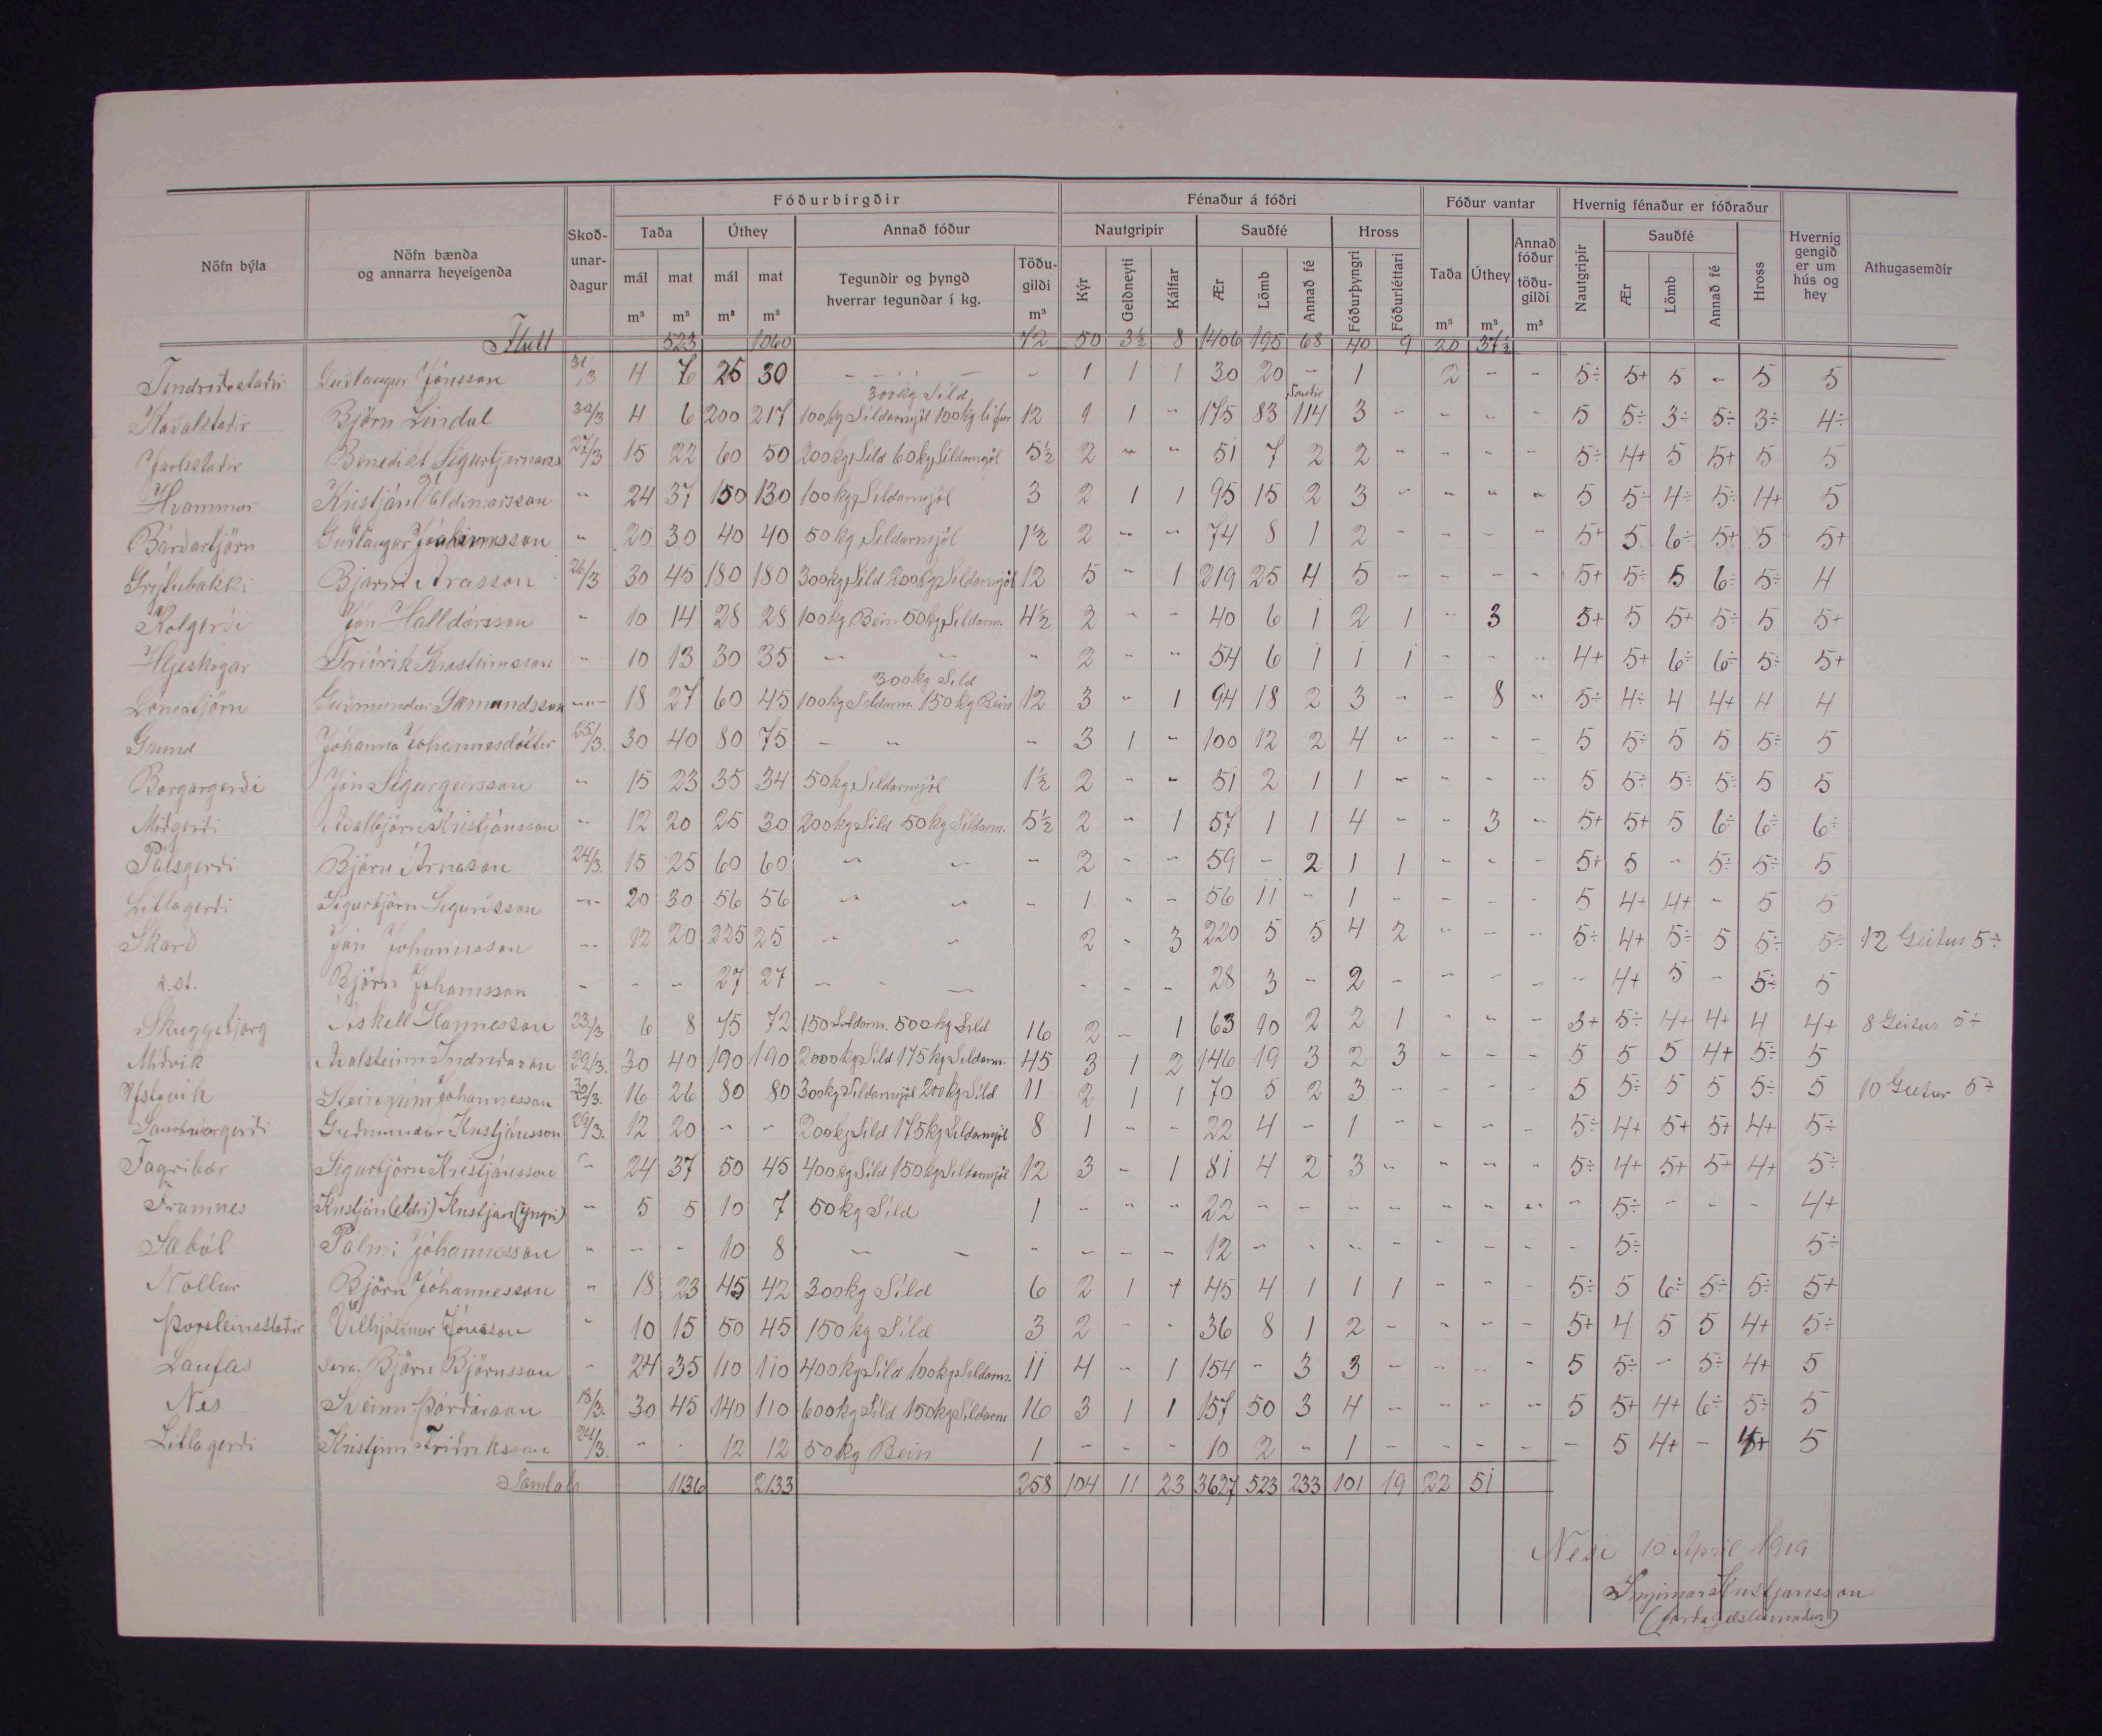 Fóðurbirgðir Fénaður á fóðri Fóður vantar Hvernig fénaður er fóðraður
Nöfn býla Nöfn bænda og annarra heyeigenda Skoðunardagur Taða Úthey Annað fóður Nautgripir Sauðfé Hross Taða Úthey Annað fóður töðugildi Nautgripir Sauðfé Hross Hvernig gengið er um hús og hey Athugasemdir
mál mat mál mat Tegundir og þyngð hverrar tegundar í kg. Töðugildi Kýr Geldneyti Kálfar Ær Lömb Annað fé Fóðurþyngri Fóðurléttari Ær Lömb Annað fé
m³ m³ m³ m³ m³ m³ m³ m³
Flutt 523 1060 72 50 3½ 8 1406 195 68 40 9 20 37½
Guðlaugur Jónsson 31/3 4 7 25 30 - - - 1 1 1 30 20 - 1 2 - - 5÷ 5+ 5 - 5 5
300 kg Síld Sauðir
Björn Líndal 30/3 4 6 200 217 100 kg Síldarmjöl 100 kg lifur 12 1 - 175 83 114 3 - - - - 5 5÷ 3÷ 5÷ 3÷ 4÷
Jarlsstaðir Benedikt 27/3 15 22 60 50 200 kg Síld 60 kg Síldarmjöl 5½ 2 - - 51 7 2 2 - - - - 5÷ 4+ 5 5+ 5 5
Hvammur Kristján Valdimarsson - 24 37 150 130 100 kg Síldarmjöl 3 2 1 1 95 15 2 3 - - - - 5 5÷ 4÷ 5÷ 4+ 5
Bárðartjörn Guðlaugur Jóakimsson - 20 30 40 40 50 kg Síldarmjöl 1½ 2 - - 74 8 1 2 - - - - 5+ 5 6÷ 5+ 5 5+
Grýtubakki Bjarni Arason 26/3 30 45 180 180 300 kg Síld 200 kg Síldarmjöl 12 5 - 1 219 25 4 5 - - - - 5+ 5÷ 5 6÷ 5÷ 4
Kolgerði Jón Halldórsson - 10 14 28 28 100 kg Bein 50 kg Síldarm. 4½ 2 - - 40 6 1 2 1 - 3 5+ 5 5+ 5÷ 5 5+
Hljeskógar Friðrik Kristinsson - 10 13 30 35 - - - 2 - - 54 6 1 1 1 - - - 4+ 5+ 6÷ 6÷ 5÷ 5+
300 kg Síld
Guðmundur Sæmundsson - 18 27 60 45 100 kg Síldarm. 150 kg Bein 12 3 - 1 94 18 2 3 - - 8 - 5÷ 4÷ 4 4+ 4 4
Grund Jóhanna Jóhannesdóttir 25/3. 30 40 80 75 - - - 3 1 - 100 12 2 4 - - - - 5 5÷ 5 5 5÷ 5
Borgargerði Jón Sigurgeirsson - 15 23 35 34 50 kg Síldarmjöl 1½ 2 - - 51 2 1 1 - - - - 5 5÷ 5÷ 5÷ 5 5
Miðgerði Aðalbjörn Kristjánsson - 12 20 25 30 200 kg Síld 50 kg Síldarm. 5½ 2 - 1 57 1 1 4 - - 3 - 5+ 5+ 5 6÷ 6÷ 6÷
Pálsgerði Björn Árnason 24/3. 15 25 60 60 - - - 2 - - 59 - 2 1 1 - - - 5+ 5 - 5÷ 5÷ 5
Litlagerði Sigurbjörn Sigurðsson - 20 30 56 56 - - - 1 - - 56 11 - 1 - - - - 5 4+ 4+ - 5 5
Skarð Jón Jóhannsson - 12 20 225 25 - - 2 - 3 220 5 5 4 2 - - - 5÷ 4+ 5÷ 5 5÷ 5÷ 12 Geitur 5÷
s.st. Björn Jóhannsson - - - 27 27 - - - - - - 28 3 - 2 - - - - - 4+ 5 - 5÷ 5
Skuggabjörg Áskell Hannesson 23/3 6 8 75 72 150 Síldarm. 500 kg Síld 16 2 - 1 63 10 2 2 1 - - - 3+ 5÷ 4+ 4+ 4 4+ 8 Geitur 5÷
Miðvík Aðalsteinn Indriðason 29/3. 30 40 190 190 2000 kg Síld 175 kg Síldarm. 45 3 1 2 146 19 3 2 3 - - - 5 5 5 4+ 5÷ 5
Ystavík Jóhannesson 30/3. 16 26 80 80 300 kg Síldarmjöl 200 kg Síld 11 2 1 1 70 5 2 3 - - - - 5 5÷ 5 5 5÷ 5 10 Geitur 5÷
Guðmundur Kristjánsson 29/3. 12 20 - - 200 kg Síld 175 kg Síldarmjöl 8 1 - - 22 4 - 1 - - - - 5÷ 4+ 5+ 5+ 4+ 5÷
Fagribær Sigurbjörn Kristjánsson - 24 37 50 45 400 kg Síld 150 kg Síldarmjöl 12 3 - 1 81 4 2 3 - - - - 5÷ 4+ 5+ 5+ 4+ 5÷
Framnes Kristján (eldri) Kristján (yngri) - 5 5 10 7 50 kg Síld 1 - - - 22 - - - - - - - - 5÷ - - - 4+
Sæból Pálmi Jóhannesson - - - 10 8 - - - - - - 12 - - - - - - - - 5÷ 5÷
Nollur Björn Jóhannesson - 18 23 45 42 300 kg Síld 6 2 1 1 45 4 1 1 1 - - - 5÷ 5 6÷ 5÷ 5÷ 5+
Þorsteinsstaðir Vilhjálmur Jónsson - 10 15 50 45 150 kg Síld 3 2 - - 36 8 1 2 - - - - 5+ 4 5 5 4+ 5÷
Laufás séra. Björn Björnsson - 24 35 110 110 400 kg Síld 100 kg Síldarm. 11 4 - 1 154 - 3 3 - - - - 5 5÷ - 5÷ 4+ 5
Nes Sveinn Þórðarson 18/3. 30 45 140 110 600 kg Síld 150 kg Síldarm 16 3 1 1 157 50 3 4 - - - - 5 5+ 4+ 6÷ 5÷ 5
Litlagerði Kristinn Friðriksson 24/3. - - 12 12 50 kg Bein 1 - - - 10 2 - 1 - - - - - 5 4+ - 4+ 5
Samtals 1136 2133 258 104 11 23 3627 523 233 101 19 22 51
Nesi 10. Apríl 1919
Ingimar Kristjánsson